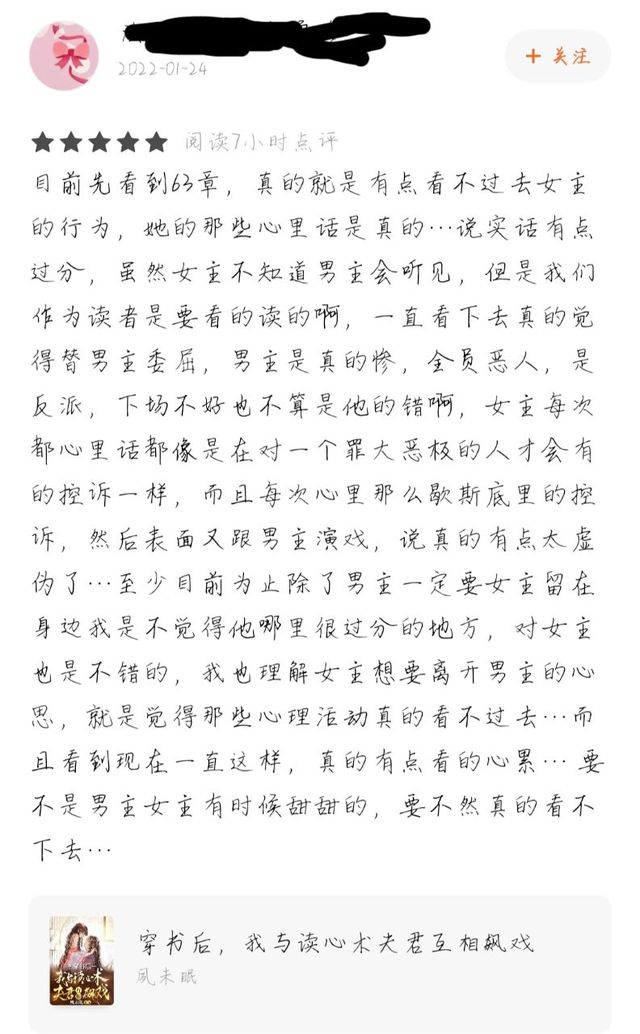 2022-01-24
+ 关注
★★★★★ 阅读7小时点评
目前先看到63章，真的就是有点看不过去女主
的行为，她的那些心里话是真的…说实话有点
过分，虽然女主不知道男主会听见，但是我们
作为读者是要看的读的啊，一直看下去真的觉
得替男主委屈，男主是真的惨，全员恶人，是
反派，下场不好也不算是他的错啊，女主每次
都心里话都像是在对一个罪大恶极的人才会有
的控诉一样，而且每次心里那么歇斯底里的控
诉，然后表面又跟男主演戏，说真的有点太虚
伪了…至少目前为止除了男主一定要女主留在
身边我是不觉得他哪里很过分的地方，对女主
也是不错的，我也理解女主想要离开男主的心
思，就是觉得那些心理活动真的看不过去…而
且看到现在一直这样，真的有点看的心累… 要
不是男主女主有时候甜甜的，要不然真的看不
下去…
穿书后，我与读心术夫君互相飙戏
夙未眠
我与读心术
夫君互相飙戏